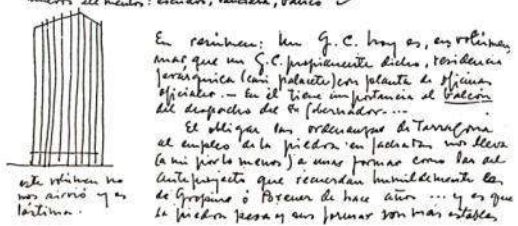 nuevos elementos: escudos, bandera, balcón
En resúmen: Un G.C. hoy es, en volúmen,
mas que un G.C. propiamente dicho, residencia
jerárquica (casi palacete) con planta de oficinas
oficiales. — En él tiene importancia el balcón
del despacho del Sr Gobernador....
El obligar las ordenanzas de Tarragona
al empleo de la piedra en fachadas nos lleva
(a mi por lo menos) a unas formas como las del
anteproyecto que recuerdan humildemente las
de Gropius ó Breuer de hace años ... y es que
la piedra pesa y sus formas son mas estables
este volúmen no
nos sirvió y es
lástima.